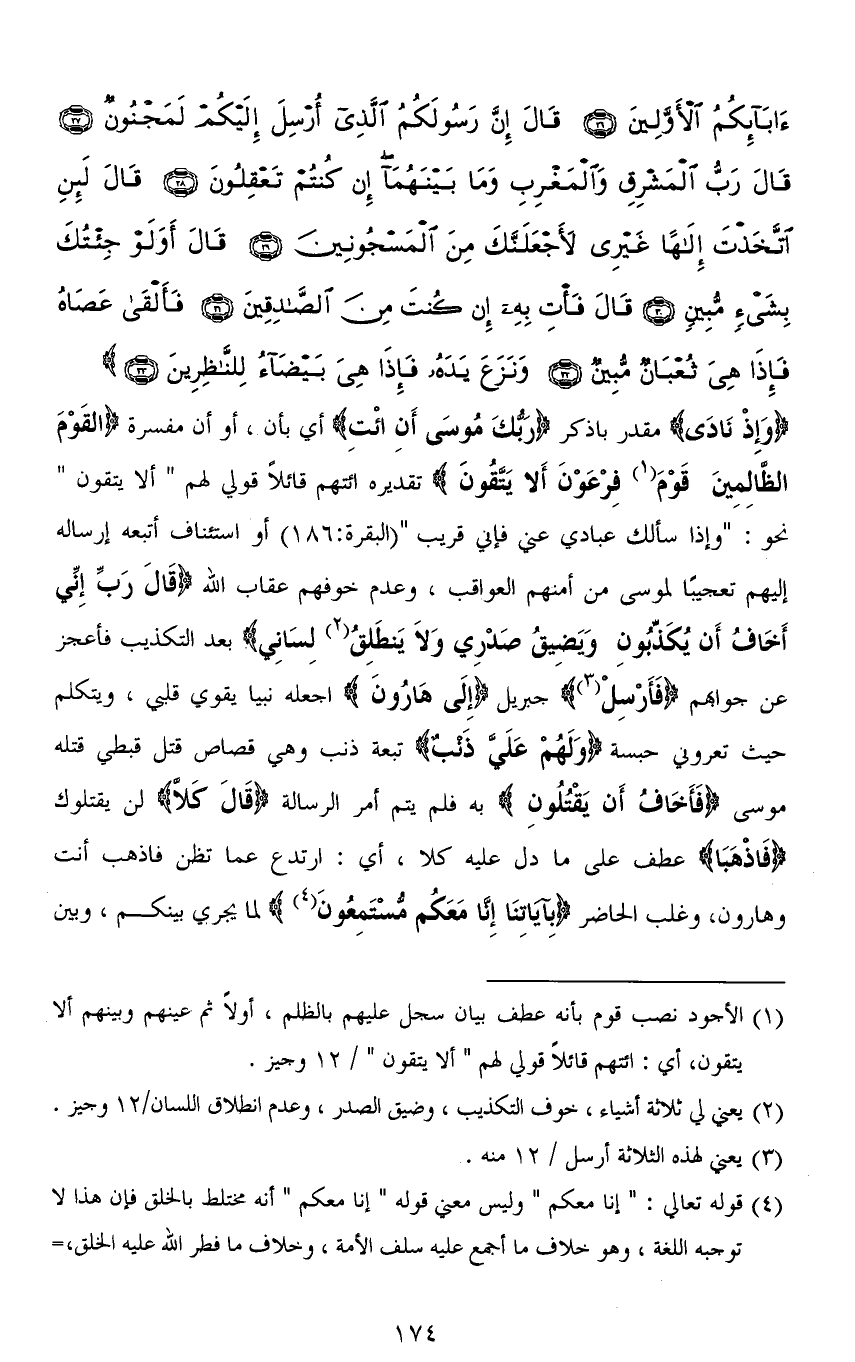 ءَابَآئِكُمُ ٱلْأَوَّلِينَ ﴿٢٦﴾ قَالَ إِنَّ رَسُولَكُمُ ٱلَّذِىٓ أُرْسِلَ إِلَيْكُمْ لَمَجْنُونٌ ﴿٢٧﴾
قَالَ رَبُّ ٱلْمَشْرِقِ وَٱلْمَغْرِبِ وَمَا بَيْنَهُمَآ ۖ إِن كُنتُمْ تَعْقِلُونَ ﴿٢٨﴾ قَالَ لَئِنِ
ٱتَّخَذْتَ إِلَٰهًا غَيْرِى لَأَجْعَلَنَّكَ مِنَ ٱلْمَسْجُونِينَ ﴿٢٩﴾ قَالَ أَوَلَوْ جِئْتُكَ
بِشَىْءٍ مُّبِينٍ ﴿٣٠﴾ قَالَ فَأْتِ بِهِۦٓ إِن كُنتَ مِنَ ٱلصَّٰدِقِينَ ﴿٣١﴾ فَأَلْقَىٰ عَصَاهُ
فَإِذَا هِىَ ثُعْبَانٌ مُّبِينٌ ﴿٣٢﴾ وَنَزَعَ يَدَهُۥ فَإِذَا هِىَ بَيْضَآءُ لِلنَّٰظِرِينَ ﴿٣٣﴾ ﴾
﴿وَإِذْ نَادَى﴾ مقدر باذكر ﴿رَبُّكَ مُوسَى أَنِ ائْتِ﴾ أي بأن ، أو أن مفسرة ﴿القَوْمَ
الظَّالِمِينَ قَوْمَ(١) فِرْعَوْنَ أَلا يَتَّقُونَ ﴾ تقديره ائتهم قائلاً قولي لهم " ألا يتقون "
نحو : "وإذا سألك عبادي عني فإني قريب "(البقرة:١٨٦) أو استئناف أتبعه إرساله
إليهم تعجيبًا لموسى من أمنهم العواقب ، وعدم خوفهم عقاب الله ﴿قَالَ رَبِّ إِنِّي
أَخَافُ أَن يُكَذِّبُونِ وَيَضِيقُ صَدْرِي وَلاَ يَنطَلِقُ(٢) لِسَانِي﴾ بعد التكذيب فأعجز
عن جوابهم ﴿فَأَرْسِلْ(٣)﴾ جبريل ﴿إِلَى هَارُونَ ﴾ اجعله نبيا يقوي قلبي ، ويتكلم
حيث تعروني حبسة ﴿وَلَهُمْ عَلَيَّ ذَنْبٌ﴾ تبعة ذنب وهي قصاص قتل قبطي قتله
موسى ﴿فَأَخَافُ أَن يَقْتُلُونِ ﴾ به فلم يتم أمر الرسالة ﴿قَالَ كَلاَّ﴾ لن يقتلوك
﴿فَاذْهَبَا﴾ عطف على ما دل عليه كلا ، أي : ارتدع عما تظن فاذهب أنت
وهارون، وغلب الحاضر ﴿بِآيَاتِنَا إِنَّا مَعَكُم مُّسْتَمِعُونَ(٤) ﴾ لما يجري بينكـــم ، وبين
(١) الأجود نصب قوم بأنه عطف بيان سجل عليهم بالظلم ، أولاً ثم عينهم وبينهم ألا
يتقون، أي : ائتهم قائلاً قولي لهم " ألا يتقون " / ١٢ وجيز .
(٢) يعني لي ثلاثة أشياء ، خوف التكذيب ، وضيق الصدر ، وعدم انطلاق اللسان/١٢ وجيز .
(٣) يعني لهذه الثلاثة أرسل / ١٢ منه .
(٤) قوله تعالي : " إنا معكم " وليس معني قوله " إنا معكم " أنه مختلط بالخلق فإن هذا لا
توجبه اللغة ، وهو خلاف ما أجمع عليه سلف الأمة ، وخلاف ما فطر الله عليه الخلق،=
١٧٤